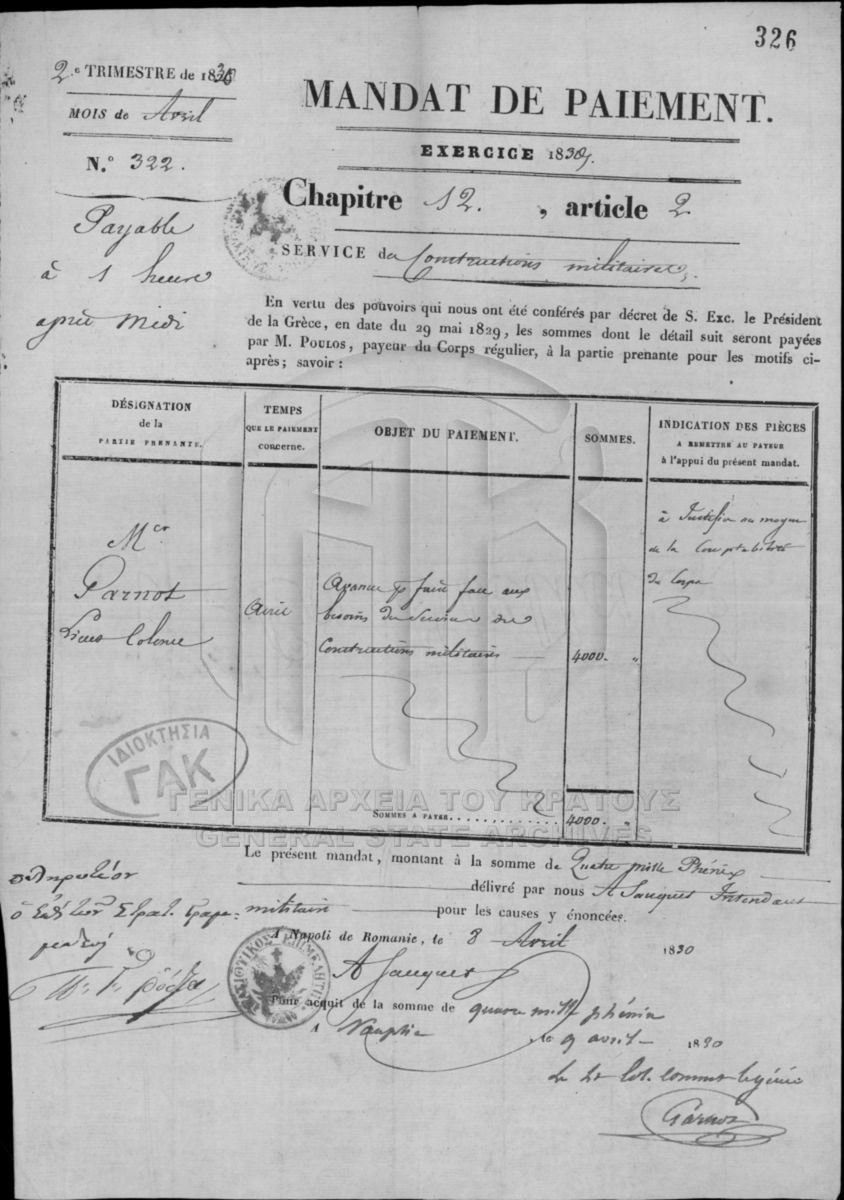 326
2.e TRIMESTRE de 1830
MOIS de Avril
N.º 322.
Payable
à 1 heure
après midi
MANDAT DE PAIEMENT.
EXERCICE 1830.
Chapitre 12. , article 2
SERVICE des Constructions militaires,
En vertu des pouvoirs qui nous ont été conférés par décret de S. Exc. le Président
de la Grèce, en date du 29 mai 1829, les sommes dont le détail suit seront payées
par M. POULOS, payeur du Corps régulier, à la partie prenante pour les motifs ci-
après; savoir :
DÉSIGNATION
de la
PARTIE PRENANTE.
TEMPS
QUE LE PAIEMENT
concerne.
OBJET DU PAIEMENT.
SOMMES.
INDICATION DES PIÈCES
A REMETTRE AU PAYEUR
à l'appui du présent mandat.
Mr
Garnot
Lieut Colonel
Avril
Avance pr faire face aux
besoins du Service des
Constructions militaires
4000. "
à Justifier au moyen
de la Comptabilité
du Corps
SOMMES A PAYER
4000. "
ΙΔΙΟΚΤΗΣΙΑ
ΓΑΚ
ΓΕΝΙΚΑ ΑΡΧΕΙΑ ΤΟΥ ΚΡΑΤΟΥΣ
GENERAL STATE ARCHIVES
Le présent mandat, montant à la somme de Quatre mille Phénix
délivré par nous A Sauquet Intendant
militaire pour les causes y énoncées.
A Napoli de Romanie, le 8 Avril 1830
A Sauquet
πληρωτέον
ὁ ἐπὶ τῶν Στρατ.
Pour acquit de la somme de quatre mille phénix
A Nauplie le 9 avril 1830
Le Lt Col. commt le génie
Garnot